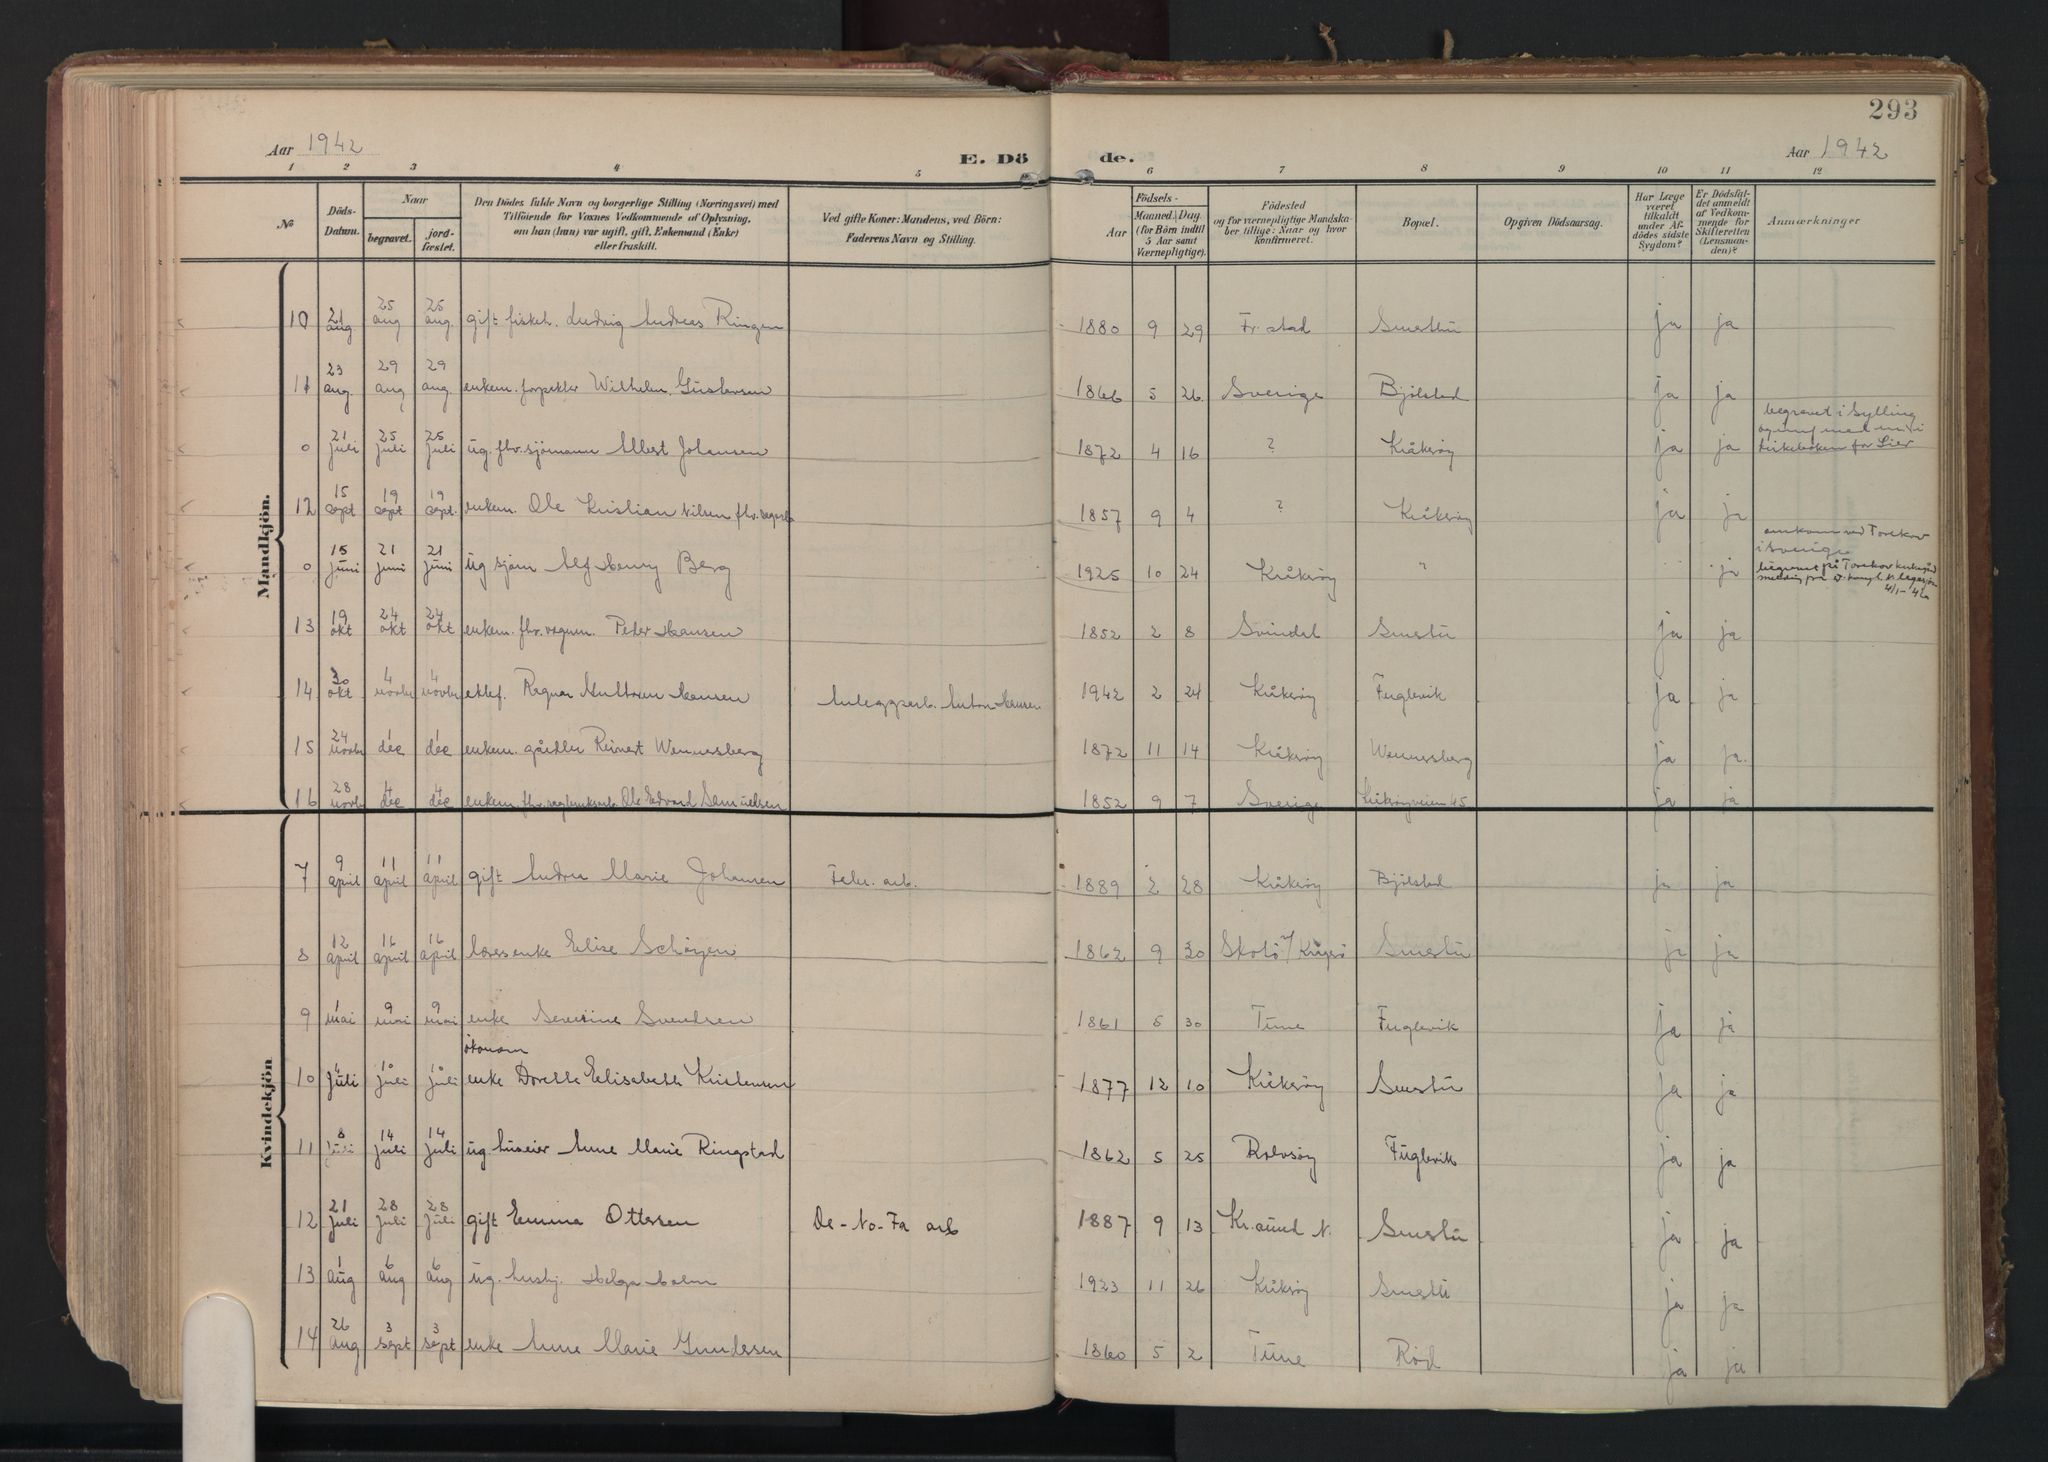 293
Aar 1942
E. Dö
de.
Aar 1942
1 2 3 4 5 6 7 8 9 10 11 12
No
Döds-
Datum.
Naar
begravet.
jord-
fæstet.
Den Dödes fulde Navn og borgerlige Stilling (Næringsvei) med
Tilföiende for Voxnes Vedkommende af Oplysning,
om han (hun) var ugift, gift, Enkemand (Enke)
eller fraskilt.
Ved gifte Koner: Mandens, ved Börn:
Faderens Navn og Stilling.
Födsels-
Aar
Maaned. Dag.
(for Börn indtil
5 Aar samt
Værnepligtige).
Födested
og for værnepligtige Mandska-
ber tillige: Naar og hvor
konfirmeret.
Bopæl.
Opgiven Dödsaarsag.
Har Læge
været
tilkaldt
under Af-
dödes sidste
Sygdom?
Er Dödsfal-
det anmeldt
af Vedkom-
mende for
Skifteretten
(Lensman-
den)?
Anmærkninger
Mandkjön.
10 21 aug 25 aug 25 aug. gift fiskeh. Ludvig Andreas Ringen 1880 9 29 Fr.stad Smestu ja ja
11 23 aug. 29 aug 29 aug. enkem. Wilhelm Gustavsen 1866 5 26 Sverige Bjölstad ja ja
0 21 juli 25 juli 25 juli ug. fhv. sjömann Albert Johansen 1872 4 16 ? Kråkröy ja ja begravet i Sylling
kirkeboken for Lier
12 15 sept 19 sept 19 sept. enkem. Ole Kristian Nilsen fhv. 1857 9 4 ? Kråkröy ja ja
0 15 juni 21 juni 21 juni ug sjöm Alf Henry Berg 1925 10 24 Kråkröy " ja omkom ved Torekov
i Sverige
begravet på Torekov kirkegård
13 19 okt 24 okt 24 okt enkem. fhv. vognm. Peter Hansen 1852 2 8 Svindal Smestu ja ja
14 30 okt 4 novbr 4 novbr ektef. Ragnar Hansen Anleggsarb. Anton Hansen 1942 2 24 Kråkröy Fuglevik ja ja
15 24 novbr 1 dec 1 dec enkem. Reinert Wennersberg 1872 11 14 Kråkröy Wennersberg ja ja.
16 28 novbr 4 dec 4 dec enkem. fhv. Ole Edvard Samuelsen 1852 9 7 Sverige Kråkröyveien 45 ja ja
Kvindekjön
7 9 april 11 april 11 april gift Andrea Marie Johansen Fabr. arb. 1889 2 28 Kråkröy Bjölstad ja ja
8 12 april 16 april 16 april enke Elise Schöyen 1862 9 20 Skåtö v/ Kragerö Smestu ja ja
9 1 mai 9 mai 9 mai enke Severine Svendsen 1861 5 30 Tune Fuglevik ja ja
ökonom
10 4 juli 10 juli 10 juli enke Dorette Elisabeth Kristensen 1877 12 10 Kråkröy Smestu ja ja
11 8 juli 14 juli 14 juli ug. huseier Anne Marie Ringstad 1862 5 25 Rolvsöy Fuglevik ja ja
12 21 juli 28 juli 28 juli gift Emma Ottesen De-No-Fa arb 1887 9 13 Kr.sund N. Smestu ja ja
13 1 aug 6 aug 6 aug ug. hushj. Helga Holm 1923 11 26 Kråkröy Smestu ja ja
14 26 aug 3 sept 3 sept enke Anne Marie Gundersen 1860 5 2 Tune Röd ja ja